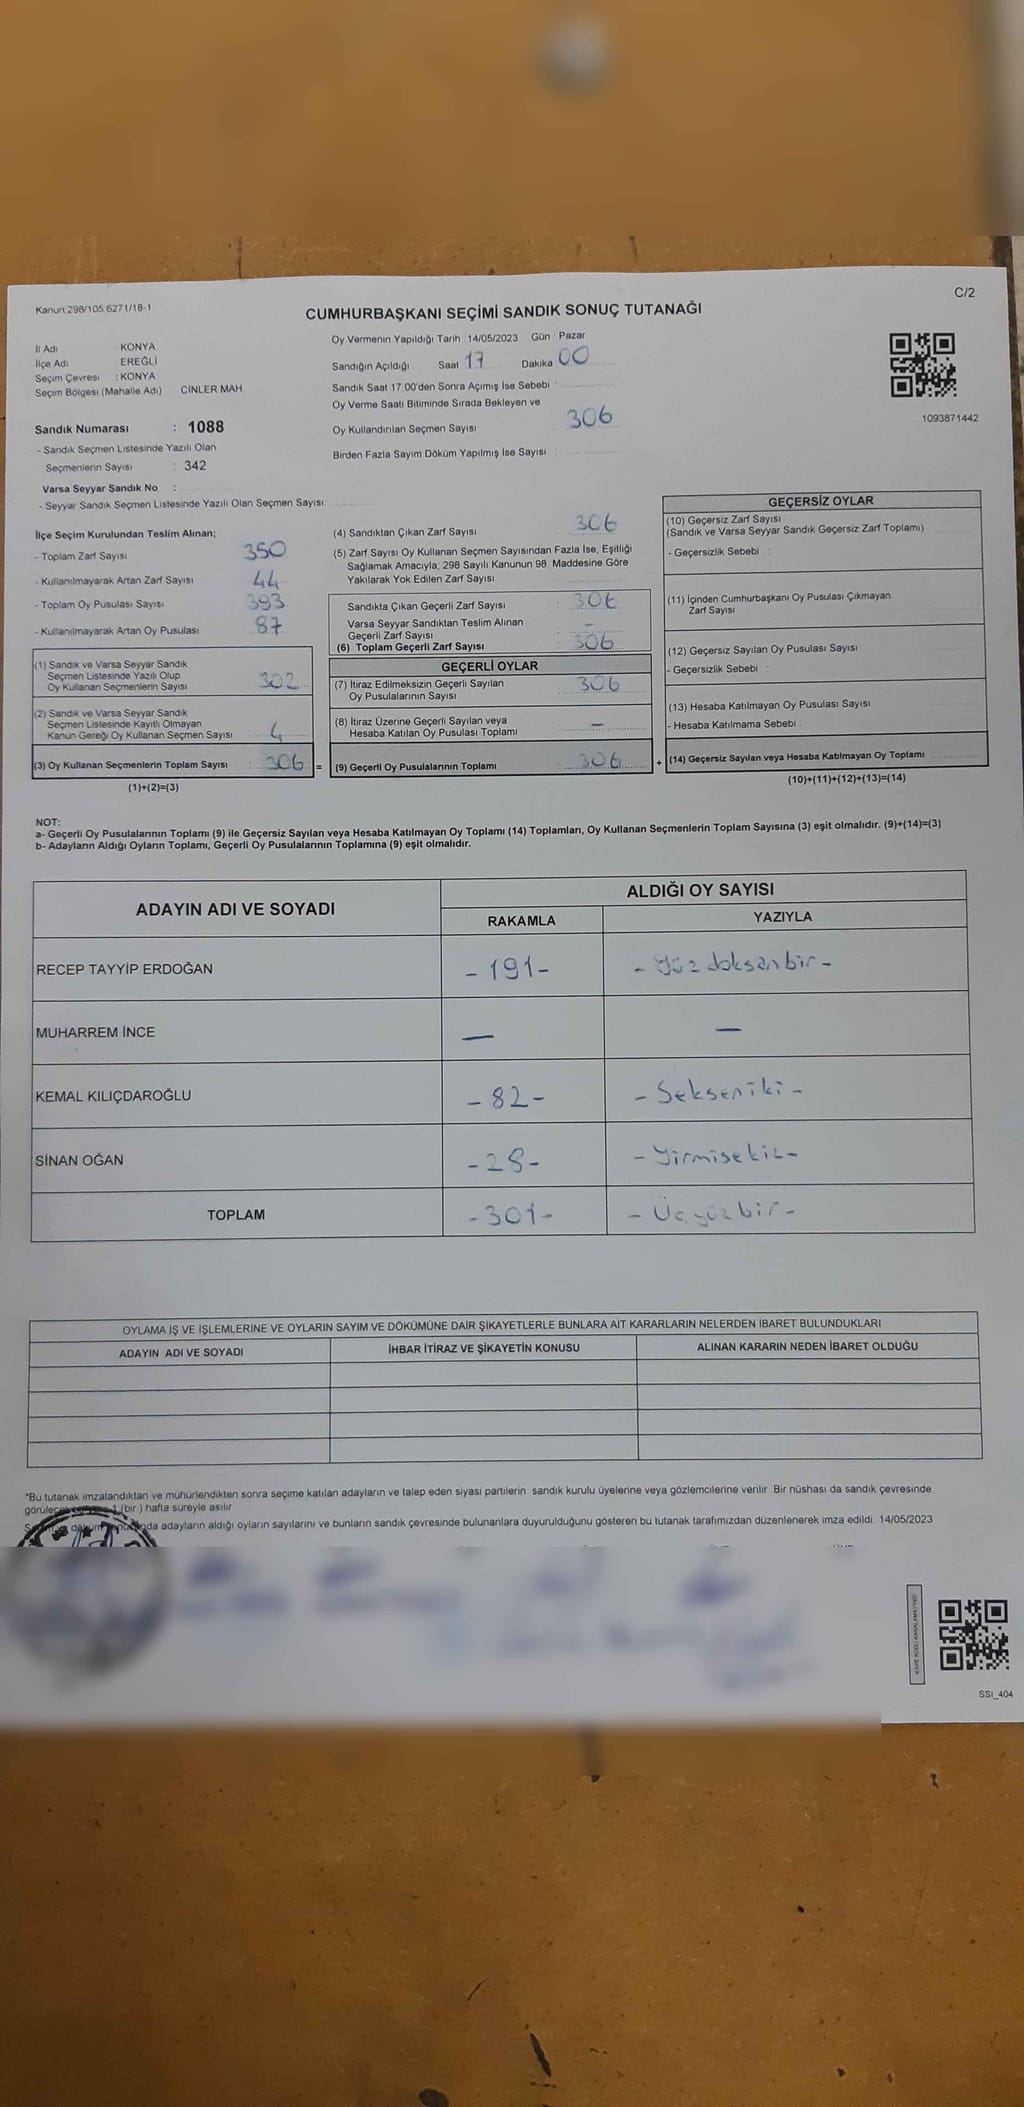 Kanun,298/105,6271/18-1
C/2
CUMHURBAŞKANI SEÇİMİ SANDIK SONUÇ TUTANAĞI
İl Adı KONYA
İlçe Adı EREĞLİ
Seçim Çevresi : KONYA
Seçim Bölgesi (Mahalle Adı) CİNLER MAH.
Sandık Numarası : 1088
- Sandık Seçmen Listesinde Yazılı Olan
Seçmenlerin Sayısı : 342
Varsa Seyyar Sandık No :
- Seyyar Sandık Seçmen Listesinde Yazılı Olan Seçmen Sayısı:
Oy Vermenin Yapıldığı Tarih : 14/05/2023 Gün : Pazar
Sandığın Açıldığı Saat 17 Dakika 00
Sandık Saat 17:00'den Sonra Açımış İse Sebebi :
Oy Verme Saati Bitiminde Sırada Bekleyen ve
Oy Kullandırılan Seçmen Sayısı : 306
Birden Fazla Sayım Döküm Yapılmış İse Sayısı :
1093871442
İlçe Seçim Kurulundan Teslim Alınan;
- Toplam Zarf Sayısı 350
- Kullanılmayarak Artan Zarf Sayısı 44
- Toplam Oy Pusulası Sayısı 393
- Kullanılmayarak Artan Oy Pusulası 87
(1) Sandık ve Varsa Seyyar Sandık
Seçmen Listesinde Yazılı Olup
Oy Kullanan Seçmenlerin Sayısı 302
(2) Sandık ve Varsa Seyyar Sandık
Seçmen Listesinde Kayıtlı Olmayan
Kanun Gereği Oy Kullanan Seçmen Sayısı : 4
(3) Oy Kullanan Seçmenlerin Toplam Sayısı : 306 =
(1)+(2)=(3)
(4) Sandıktan Çıkan Zarf Sayısı : 306
(5) Zarf Sayısı Oy Kullanan Seçmen Sayısından Fazla İse, Eşitliği
Sağlamak Amacıyla, 298 Sayılı Kanunun 98. Maddesine Göre
Yakılarak Yok Edilen Zarf Sayısı :
Sandıkta Çıkan Geçerli Zarf Sayısı : 306
Varsa Seyyar Sandıktan Teslim Alınan
Geçerli Zarf Sayısı : -
(6) Toplam Geçerli Zarf Sayısı : 306
GEÇERLİ OYLAR
(7) İtiraz Edilmeksizin Geçerli Sayılan
Oy Pusulalarının Sayısı : 306
(8) İtiraz Üzerine Geçerli Sayılan veya
Hesaba Katılan Oy Pusulası Toplamı : -
(9) Geçerli Oy Pusulalarının Toplamı : 306 +
GEÇERSİZ OYLAR
(10) Geçersiz Zarf Sayısı
(Sandık ve Varsa Seyyar Sandık Geçersiz Zarf Toplamı)
- Geçersizlik Sebebi :
(11) İçinden Cumhurbaşkanı Oy Pusulası Çıkmayan
Zarf Sayısı
(12) Geçersiz Sayılan Oy Pusulası Sayısı
- Geçersizlik Sebebi :
(13) Hesaba Katılmayan Oy Pusulası Sayısı
- Hesaba Katılmama Sebebi :
(14) Geçersiz Sayılan veya Hesaba Katılmayan Oy Toplamı
(10)+(11)+(12)+(13)=(14)
NOT:
a- Geçerli Oy Pusulalarının Toplamı (9) ile Geçersiz Sayılan veya Hesaba Katılmayan Oy Toplamı (14) Toplamları, Oy Kullanan Seçmenlerin Toplam Sayısına (3) eşit olmalıdır. (9)+(14)=(3)
b- Adayların Aldığı Oyların Toplamı, Geçerli Oy Pusulalarının Toplamına (9) eşit olmalıdır.
ADAYIN ADI VE SOYADI
ALDIĞI OY SAYISI
RAKAMLA YAZIYLA
RECEP TAYYİP ERDOĞAN -191- - Yüz doksan bir -
MUHARREM İNCE — —
KEMAL KILIÇDAROĞLU -82- - Seksen iki -
SİNAN OĞAN -28- - Yirmisekiz-
TOPLAM -301- - Üçyüz bir -
OYLAMA İŞ VE İŞLEMLERİNE VE OYLARIN SAYIM VE DÖKÜMÜNE DAİR ŞİKAYETLERLE BUNLARA AİT KARARLARIN NELERDEN İBARET BULUNDUKLARI
ADAYIN ADI VE SOYADI İHBAR İTİRAZ VE ŞİKAYETİN KONUSU ALINAN KARARIN NEDEN İBARET OLDUĞU
*Bu tutanak imzalandıktan ve mühürlendikten sonra seçime katılan adayların ve talep eden siyasi partilerin sandık kurulu üyelerine veya gözlemcilerine verilir. Bir nüshası da sandık çevresinde
1 (bir ) hafta süreyle asılır.
adayların aldığı oyların sayılarını ve bunların sandık çevresinde bulunanlara duyurulduğunu gösteren bu tutanak tarafımızdan düzenlenerek imza edildi. 14/05/2023
SSI_404